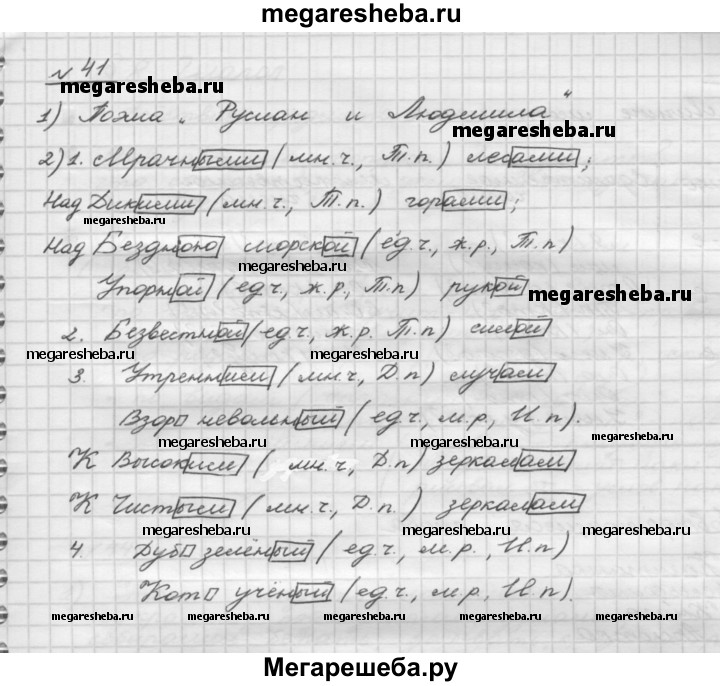 megaresheba.ru
№ 41
megaresheba.ru
1) Поэма „Руслан и Людмила"
megaresheba.ru
2) 1. Мрачными (мн.ч., Т.п.) лесами;
Над Дикими (мн.ч., Т.п.) горами;
megaresheba.ru
Над Бездною морской (ед.ч., ж.р., Т.п)
megaresheba.ru
Упорной (ед ч, ж.р., Т.п) рукой
megaresheba.ru
2. Безвестной (ед ч, ж.р. Т.п) силой
megaresheba.ru megaresheba.ru
3. Утренним (мн.ч, Д.п) случаем
Взор невольный (ед ч, м.р, И.п).
megaresheba.ru megaresheba.ru megaresheba.ru
К Высоким (мн.ч, Д.п) зеркалам
К Чистым (мн.ч., Д.п.) зеркалам
megaresheba.ru megaresheba.ru megaresheba.ru
4. Дуб зелёный (ед.ч., м.р., И.п)
Кот учёный (ед.ч., м.р, И.п).
megaresheba.ru megaresheba.ru megaresheba.ru megaresheba.ru
Мегарешеба.ру